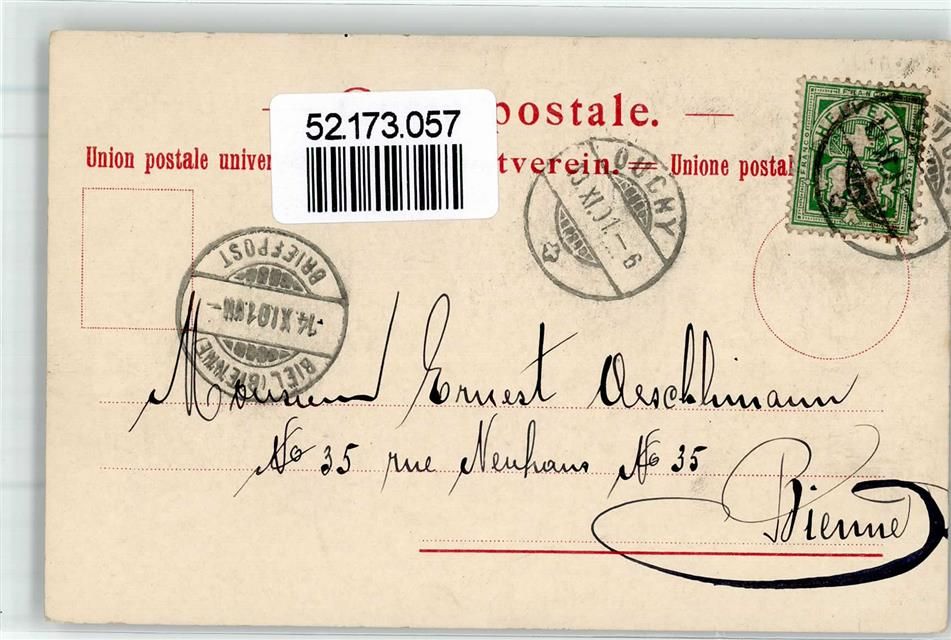 52.173.057
postale.
Union postale univer tverein. = Unione postal
OUCHY
XI.01.–6
FRANCO
HELVETIA
BRIEFPOST
14.XI.01.VII–
BIEL (BIENNE)
Monsieur Ernest Oeschlimann
No 35 rue Neuhaus No 35
Bienne